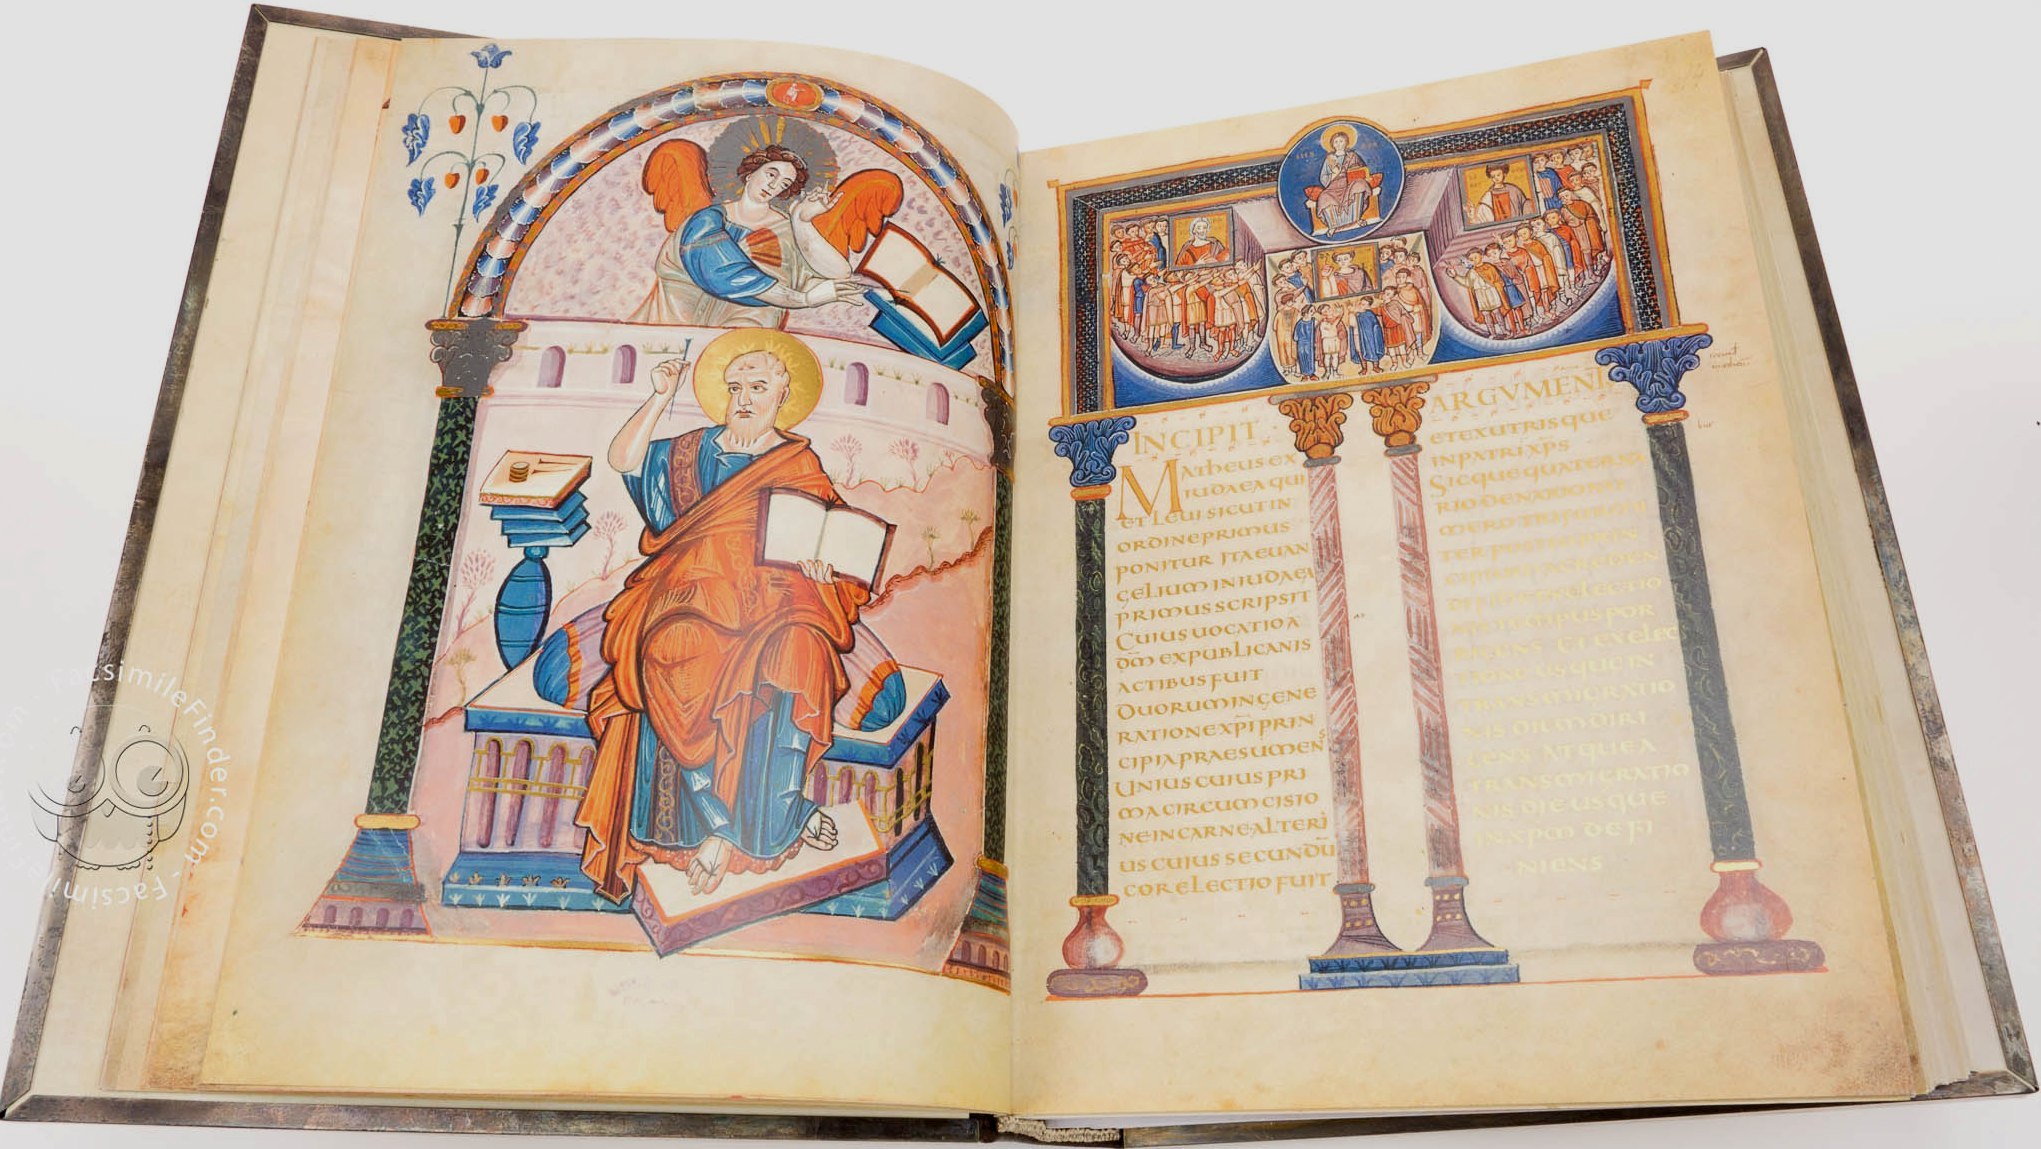 INCIPIT
Matheus ex
iudaea qui
et Leui sicut in
ordine primus
ponitur ita euan
gelium in iudaea
primus scripsit
Cuius uocatio a
dm̄ ex publicanis
actibus fuit
Duorum in gene
ratione xp̄i prin
cipia praesumens
Unius cuius pri
ma circumcisio
ne in carne alteri
us cuius secundū
cor electio fuit
ARGVMEN
et ex utrisque
in patri xp̄s
Sic que quater
rio denario
mero
electio
tempus por
Et exele
usque in
transmigratio
nis diem diri
gens atque a
transmigratio
nis die usque
in xp̄m defi
niens
FacsimileFinder.com